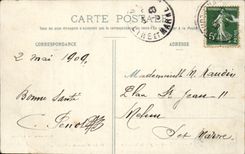 CARTE POSTALE
CORRESPONDANCE
ADRESSE
2 mai 1909.
Bonne Santé
Mademoiselle M. Naudin
Place St Jean 11
Melun
S et Marne
ET MARNE
5c